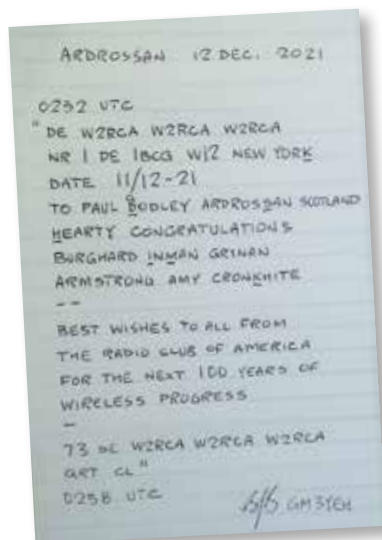 ARDROSSAN 12 DEC. 2021
0232 UTC
"DE W2RCA W2RCA W2RCA
NR 1 DE 1BCG W12 NEW YORK
DATE 11/12-21
TO PAUL GODLEY ARDROSSAN SCOTLAND
HEARTY CONGRATULATIONS
BURGHARD INMAN GRINAN
ARMSTRONG AMY CRONKHITE
--
BEST WISHES TO ALL FROM
THE RADIO CLUB OF AMERICA
FOR THE NEXT 100 YEARS OF
WIRELESS PROGRESS
-
73 DE W2RCA W2RCA W2RCA
QRT CL"
0258 UTC
GM3YEH